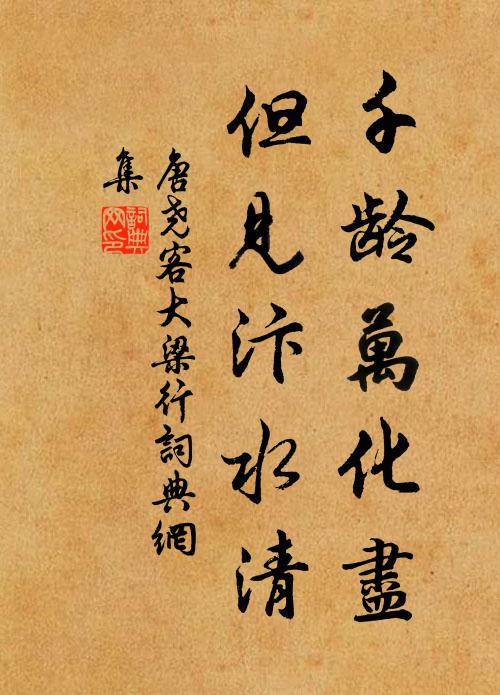 千龄萬化盡
但見汴水清
唐尧客大梁行詞典網
集
詞典網印